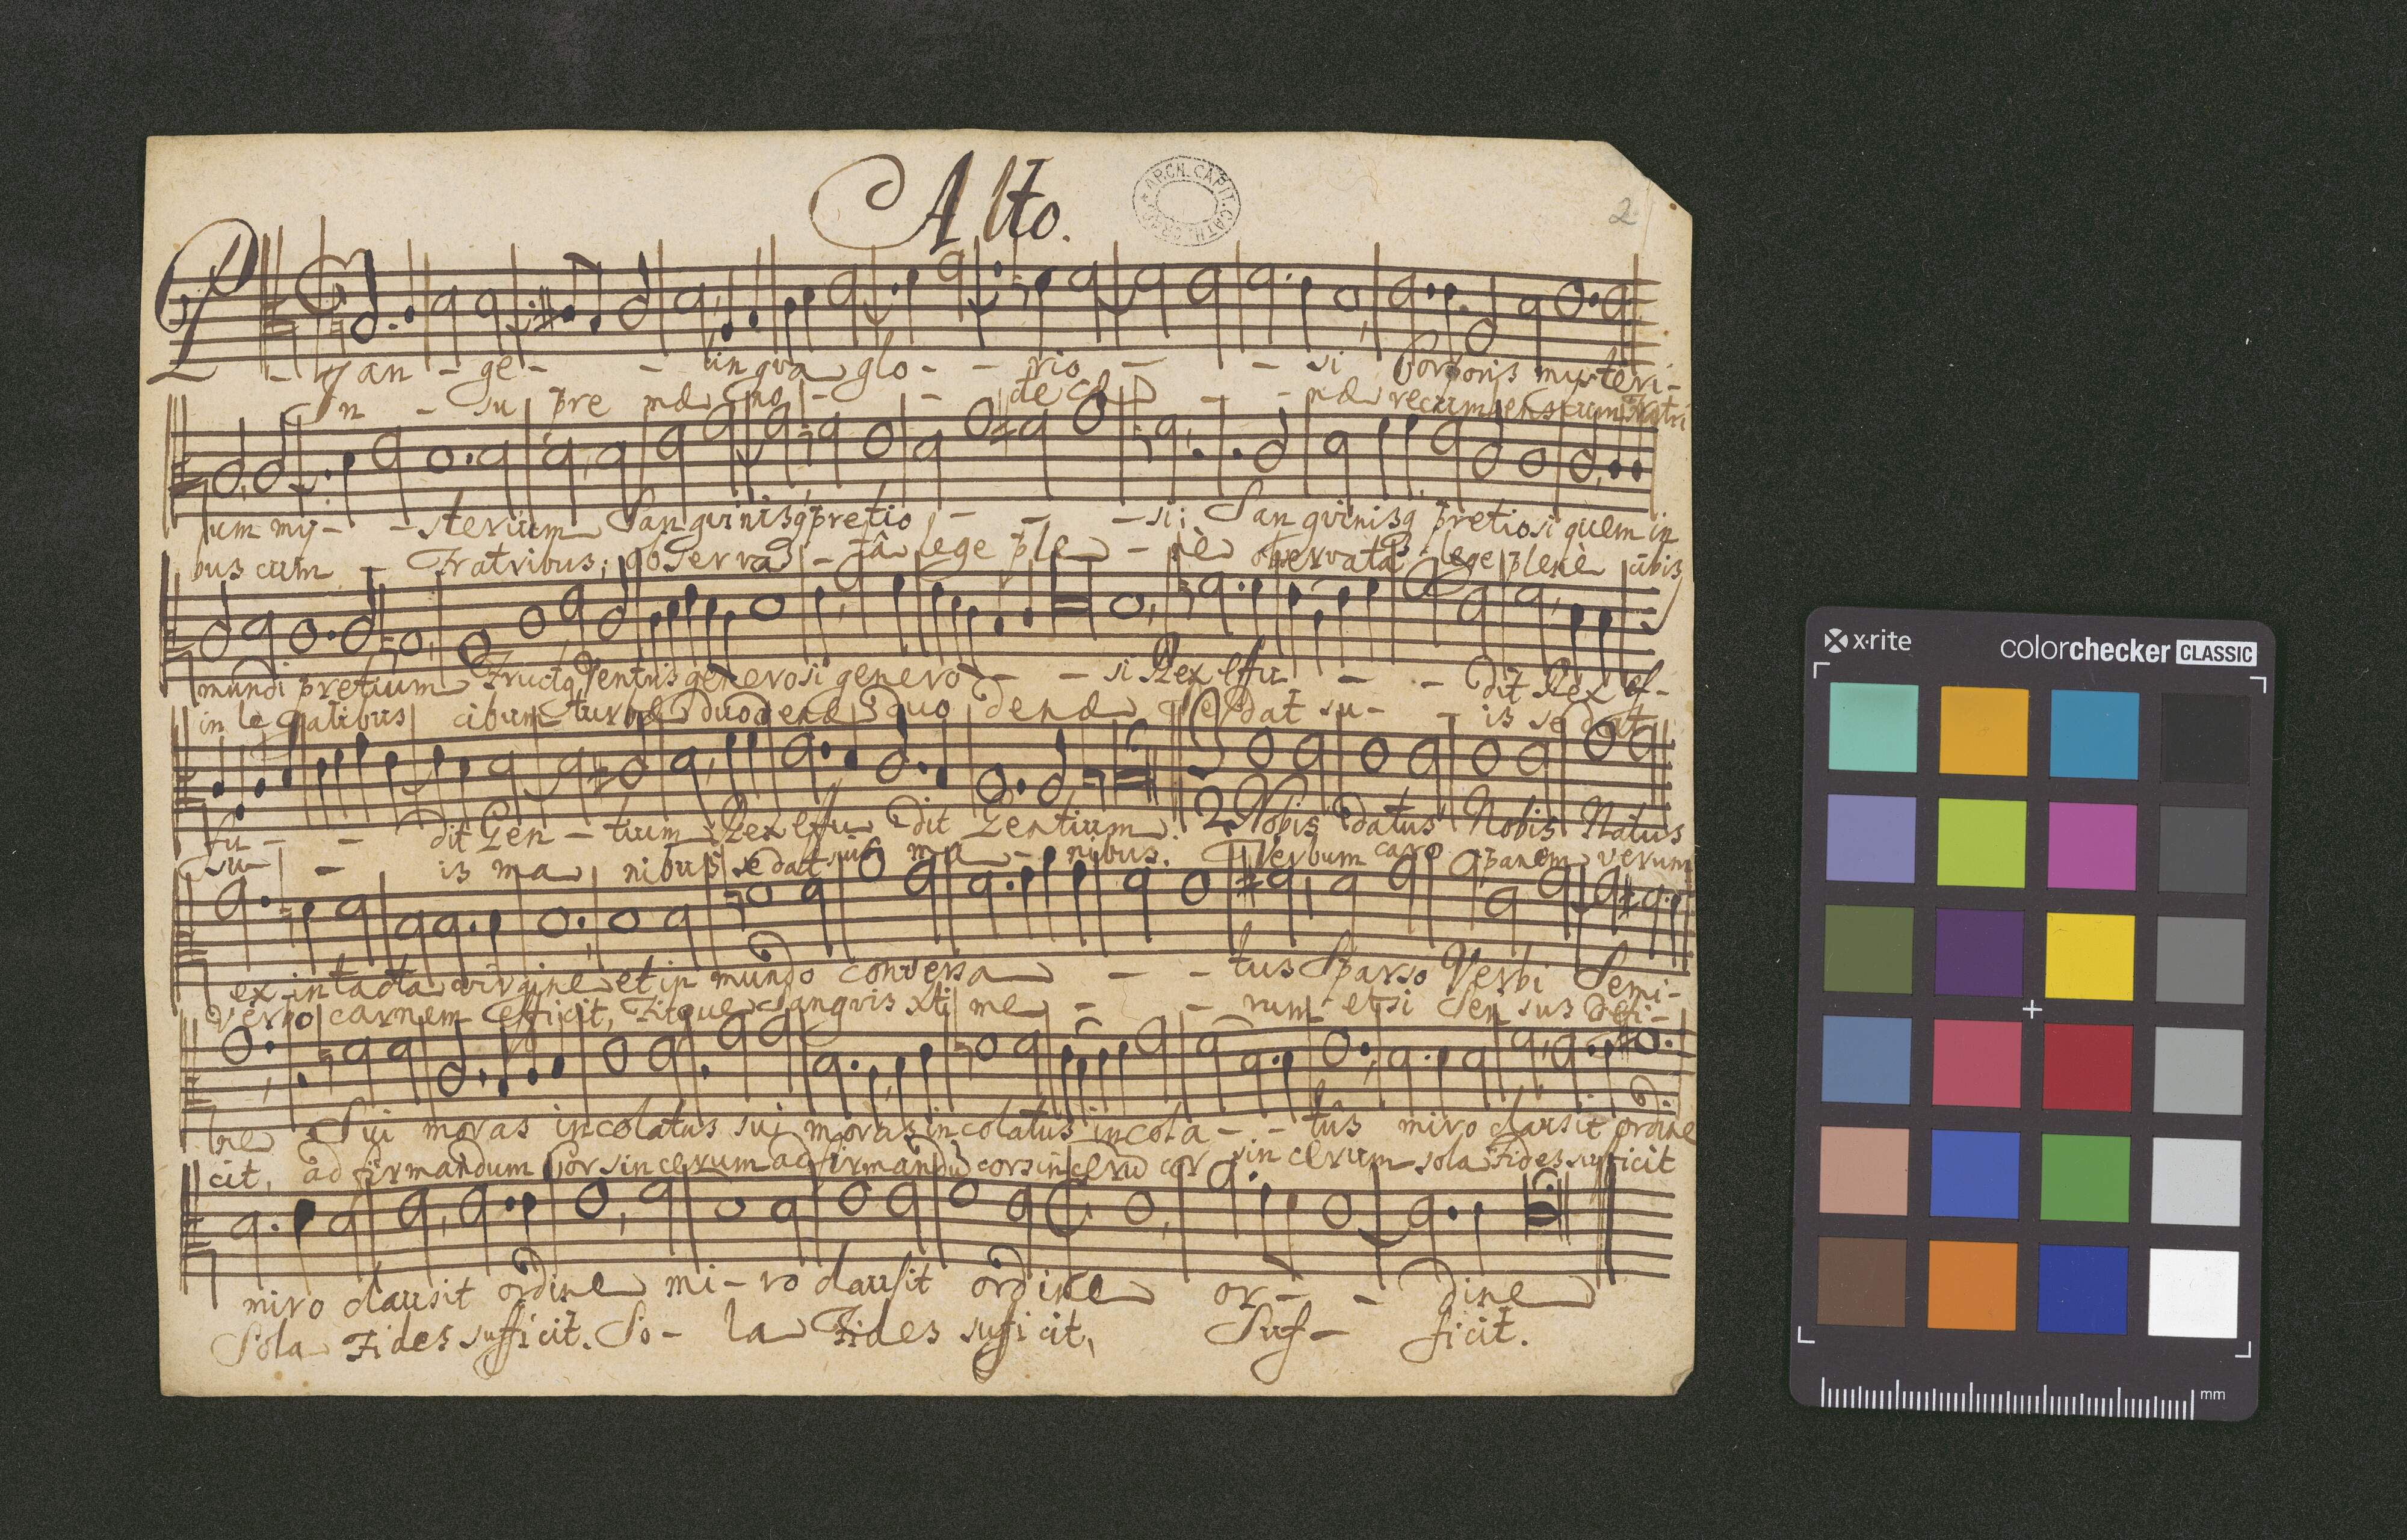 Alto.
ARCH. CAPIT. CATH. CRAC.
2
Pan - ge - - lingva glo - - rio - - si Corporis mysteri-
In - su pre mæ no - - de cæ - - næ recumbens cum Fratri
um my - - sterium Sangvinisq pretio - - - si; Sangvinisq pretiosi quem in
bus cum - Fratribus; observa - tâ lege ple - nè observatâ lege plenè cibis
mundi pretium Fructq Ventris generosi genero - - si Rex effu - - dit Rex ef-
in legalibus cibum turbæ duodenæ duo denæ se dat su - - is se dat
fu - - dit Gen - tium Rex effu dit Gentium. 2. Nobis datus Nobis Natus
su - - is ma nibus se dat suis ma - nibus. Verbum caro panem verum
ex intacta virgine et in mundo conversa - - tus Sparso Verbi Semi-
Verbo carnem efficit, Fitque Sangvis xti me - - rum et si Sensus Defi-
ne Sui moras incolatus sui moras incolatus incola - - tus miro clausit ordine
cit, ad firmandum Cor sincerum ad firmandũ cor sincerũ cor sincerum sola Fides sufficit
miro clausit ordine mi - ro clausit ordine or - - dine
Sola Fides sufficit. So - la Fides sufficit, Suf - ficit.
x·rite
colorchecker CLASSIC
mm